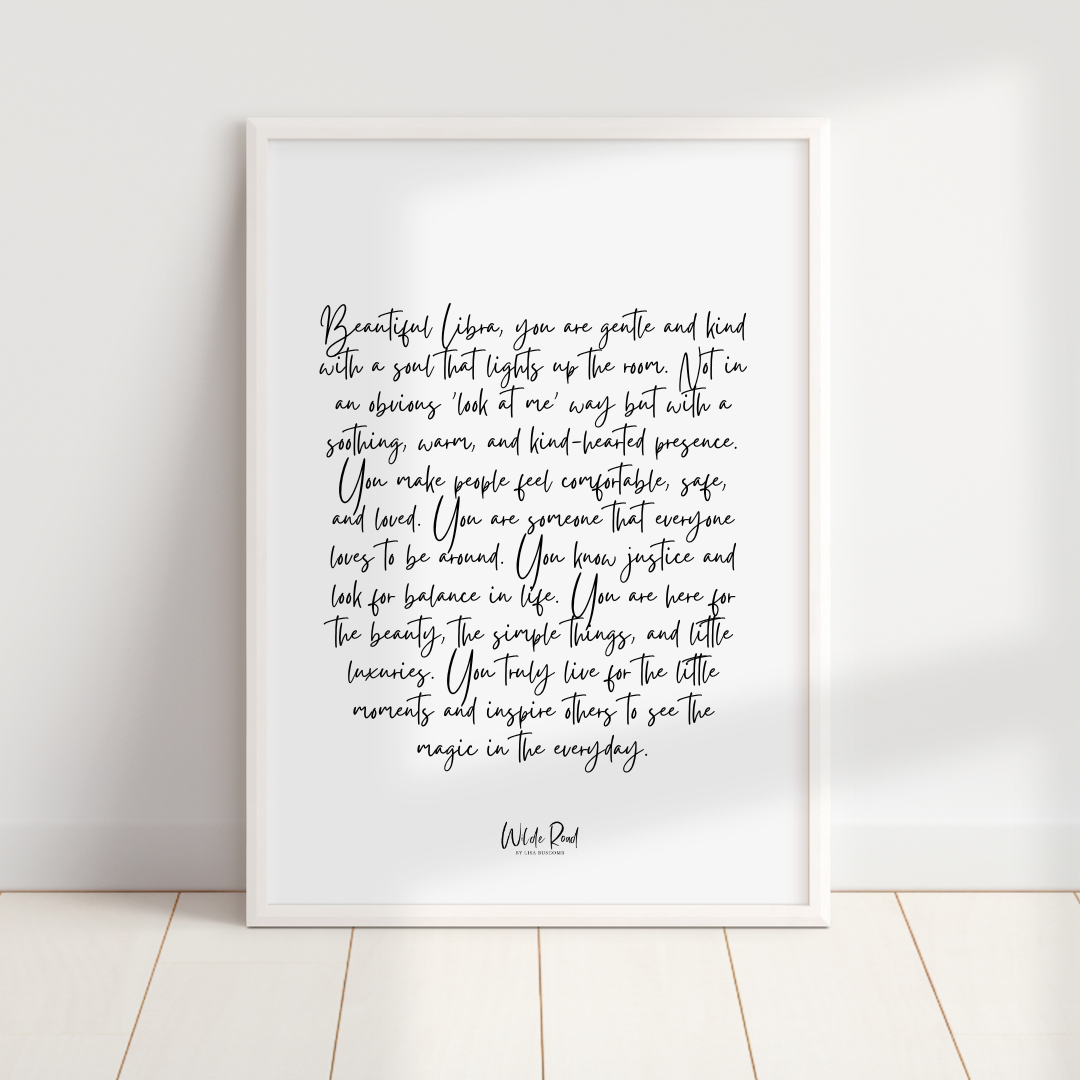 Beautiful Libra, you are gentle and kind
with a soul that lights up the room. Not in
an obvious 'look at me' way but with a
soothing, warm, and kind-hearted presence.
You make people feel comfortable, safe,
and loved. You are someone that everyone
loves to be around. You know justice and
look for balance in life. You are here for
the beauty, the simple things, and little
luxuries. You truly live for the little
moments and inspire others to see the
magic in the everyday.
Wilde Road
BY LISA BUSCOMB